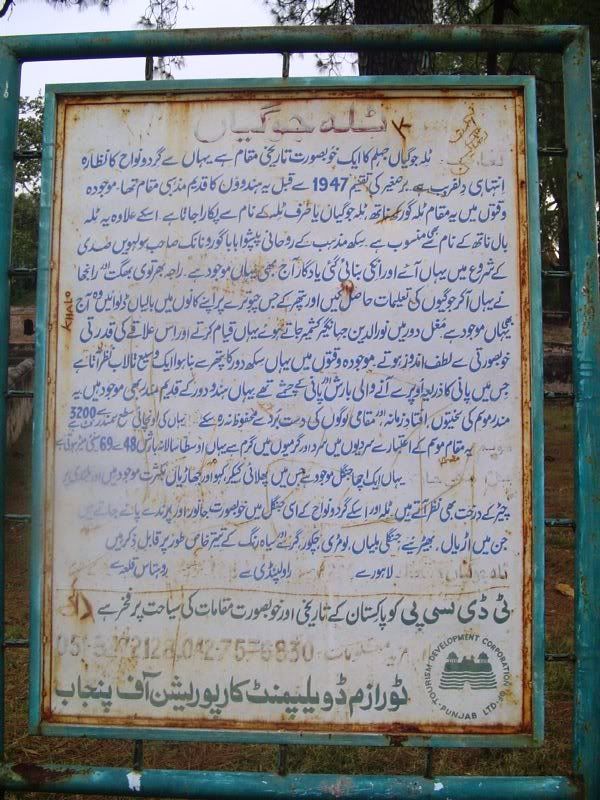 ٹلہ جوگیاں
ٹلہ جوگیاں جہلم کا ایک خوبصورت تاریخی مقام ہے یہاں سے گرد و نواح کا نظارہ
انتہائی دلفریب ہے۔ برصغیر کی تقسیم 1947 سے قبل یہ ہندوؤں کا قدیم مذہبی مقام تھا۔ موجودہ
وقتوں میں یہ مقام ٹلہ گورکھ ناتھ، ٹلہ جوگیاں یا صرف ٹلہ کے نام سے پکارا جاتا ہے۔ اسکے علاوہ یہ ٹلہ
بال ناتھ کے نام سے بھی منسوب ہے۔ سکھ مذہب کے روحانی پیشوا بابا گورونانک صاحب سولہویں صدی
کے شروع میں یہاں آئے اور انکی بنائی گئی یادگار آج بھی یہاں موجود ہے۔ راجہ بھرتری بھگت اور رانجھا
نے یہاں آکر جوگیوں کی تعلیمات حاصل کیں اور پتھر کے جس چبوترے پر اپنے کانوں میں بالیاں ڈلوائیں وہ آج
بھی یہاں موجود ہے۔ مغل دور میں نورالدین جہانگیر کشمیر جاتے ہوئے یہاں قیام کرتے اور اس علاقے کی قدرتی
خوبصورتی سے لطف اندوز ہوتے۔ موجودہ وقتوں میں یہاں سکھ دور کا پتھر سے بنا ہوا ایک وسیع تالاب نظر آتا ہے
جس میں پانی کا ذریعہ اوپر سے آنے والی بارش اور پانی کے چشمے تھے یہاں ہندو دور کے قدیم مندر بھی موجود ہیں۔ یہ
مندر موسم کی سختیوں، افتاد زمانہ اور مقامی لوگوں کی دست برد سے محفوظ نہ رہ سکے۔ یہاں کی اونچائی سطح سمندر سے 3200
یہ مقام موسم کے اعتبار سے سردیوں میں سرد اور گرمیوں میں گرم ہے یہاں اوسطاً سالانہ بارش 48 سے 69 سنٹی میٹر ہوتی ہے
یہاں ایک اچھا جنگل موجود ہے جس میں پھلائی کیکر کہو اور جھاڑیاں بکثرت موجود ہیں اور بلندی پر
چیڑ کے درخت بھی نظر آتے ہیں۔ ٹلہ اور اسکے گرد و نواح کے اس جنگل میں خوبصورت جانور اور پرندے پائے جاتے ہیں
جن میں اڑیال، بھیڑیئے، جنگلی بلیاں، لومڑی، چکور، گرے اور سیاہ رنگ کے تیتر خاص طور پر قابل ذکر ہیں
لاہور سے راولپنڈی سے روہتاس قلعہ سے
ٹی ڈی سی پی کو پاکستان کے تاریخی اور خوبصورت مقامات کی سیاحت پر فخر ہے
ٹورازم ڈویلپمنٹ کارپوریشن آف پنجاب
TOURISM DEVELOPMENT CORPORATION OF PUNJAB LTD
KHALO